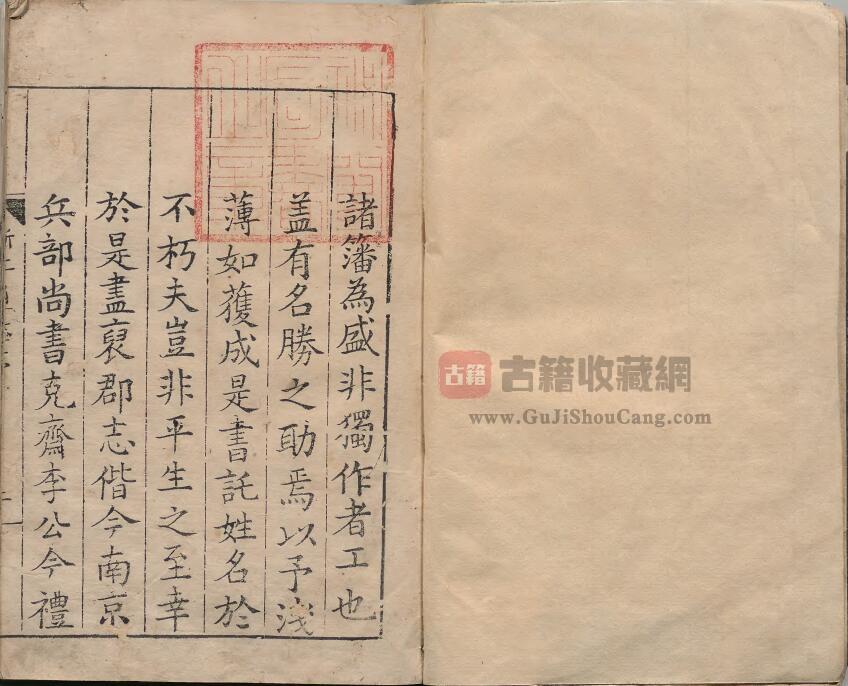 諸籓為盛非獨作者工也
盖有名勝之助焉以予淺
薄如獲成是書託姓名於
不朽夫豈非平生之至幸
於是盡裒郡志偕今南京
兵部尚書克齋李公今禮
古籍
古籍收藏網
www.GuJiShouCang.com